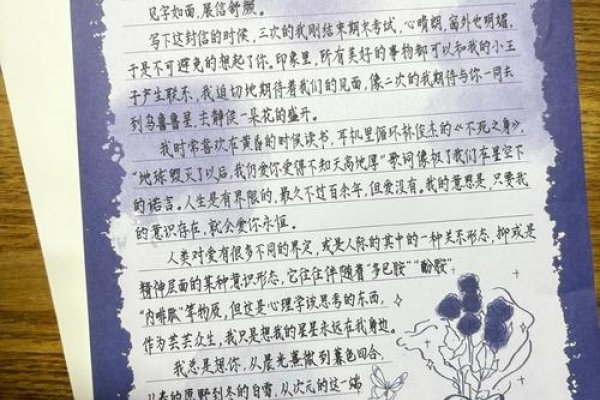 见字如面，展信舒颜。
写下这封信的时候，三次的我刚结束期末考试，心晴朗，窗外也明媚，
于是不可避免的想起了你。印象里，所有美好的事物都可以和我的小王
子产生联系，我迫切地期待着我们的见面，像二次的我期待与你一同去
到乌鲁鲁星，去静候一朵花的盛开。
我时常喜欢在黄昏的时候读书，耳机里循环林俊杰的《不死之身》，
“地球毁灭了以后，我仍爱你爱得不知天高地厚”歌词像极了我们在星空下
的诺言。人生是有界限的，最久不过百余年，但爱没有，我的意思是，只要我
的意识存在，就会爱你永恒。
人类对爱有很多不同的界定，或是人际的其中的一种关系形态，抑或是
精神层面的某种意识形态，它往往伴随着“多巴胺”“酚胺”
“内啡肽”等物质，但这是心理学该思考的东西，
作为芸芸众生，我只是想我的星星永远在我身边。
我总是想你，从晨光熹微到暮色四合，
从春的原野到冬的白雪，从次元的这一端